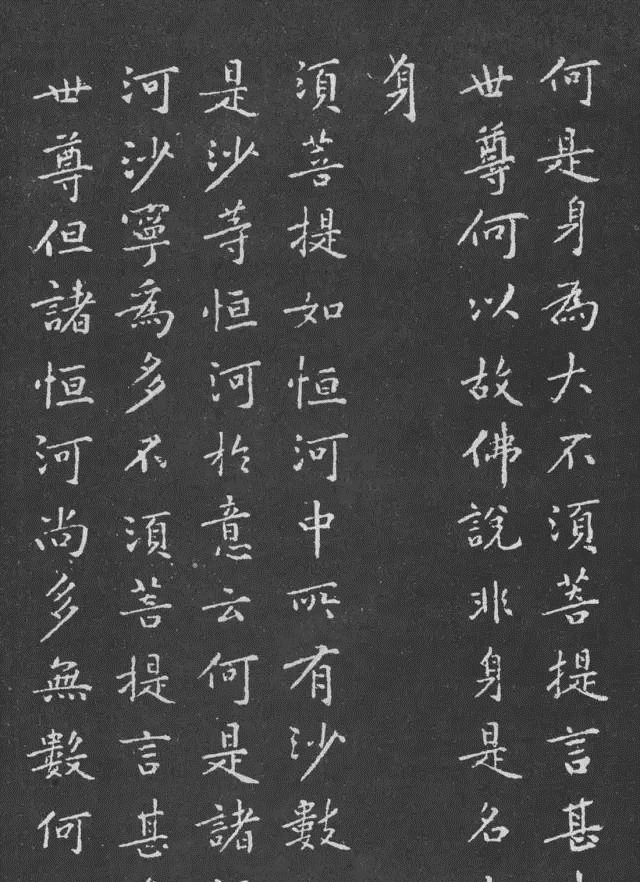 何是身為大不須菩提言甚
世尊何以故佛說非身是名
身
須菩提如恒河中所有沙數
是沙等恒河於意云何是諸
河沙寧為多不須菩提言甚
世尊但諸恒河尚多無數何